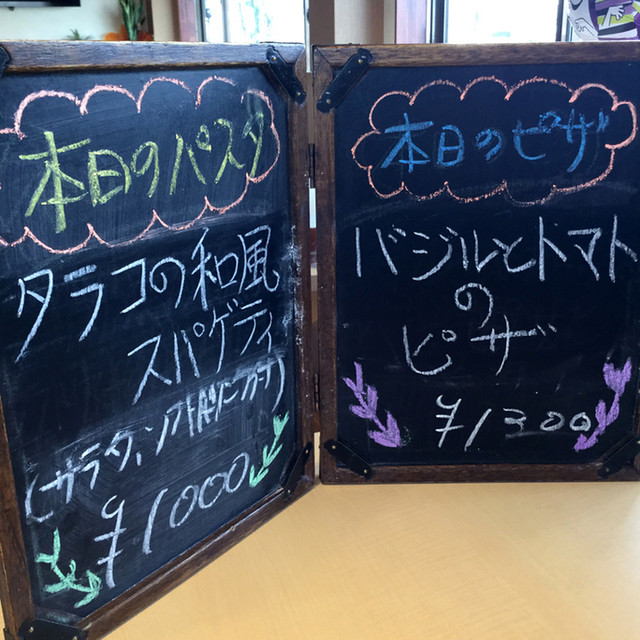 本日のパスタ
タラコの和風
スパゲティ
(サラダ、
¥1000
本日のピザ
バジルとトマト
の
ピザ
¥1300